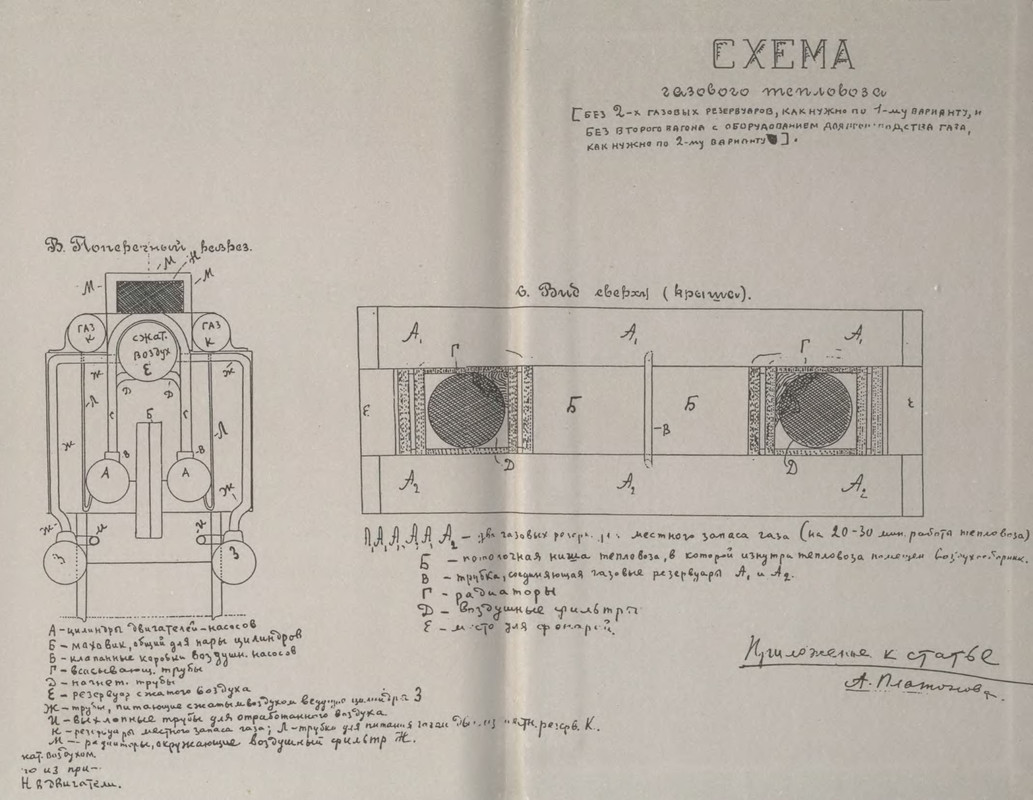 СХЕМА
газового тепловоза
[БЕЗ 2-х ГАЗОВЫХ РЕЗЕРВУАРОВ, КАК НУЖНО ПО 1-му ВАРИАНТУ, И
БЕЗ ВТОРОГО ВАГОНА С ОБОРУДОВАНИЕМ ДЛЯ ГАЗА,
КАК НУЖНО ПО 2-му ВАРИАНТУ].
В. Поперечный разрез.
М Н
М М
ГАЗ К
ГАЗ К
СЖАТ. ВОЗДУХ Е
Ж Ж
Д Д
Л Г Б Г Л
Ж В В
А А
Ж
Ж И И
З З
С. Вид сверху (крыша).
А₁ А₁ А₁
Г Г
Е Б Б Е
В
Д Д
А₂ А₂ А₂
газовых местного запаса газа (на 20-30 мин. работы тепловоза)
Б – потолочная ниша тепловоза, в которой изнутри тепловоза помещен воздухосборник.
В – трубка, соединяющая газовые резервуары А₁ и А₂.
Г – радиаторы
Д – воздушные фильтры
Е – место для фонарей.
А – цилиндры двигателей-насосов
Б – маховик, общий для пары цилиндров
В – клапанные коробки воздушн. насосов
Г – всасывающ. трубы
Д – нагнет. трубы
Е – резервуар сжатого воздуха
Ж – трубы, питающие сжатым воздухом ведущие цилиндры З
И – выхлопные трубы для отработанного воздуха
К – резервуары местного запаса газа; Л – трубка для питания газом резерв. К.
М – радиаторы, окружающие воздушный фильтр Н.
воздухом
го из при-
Н в двигатели.
Приложение к статье
А. Платонова.